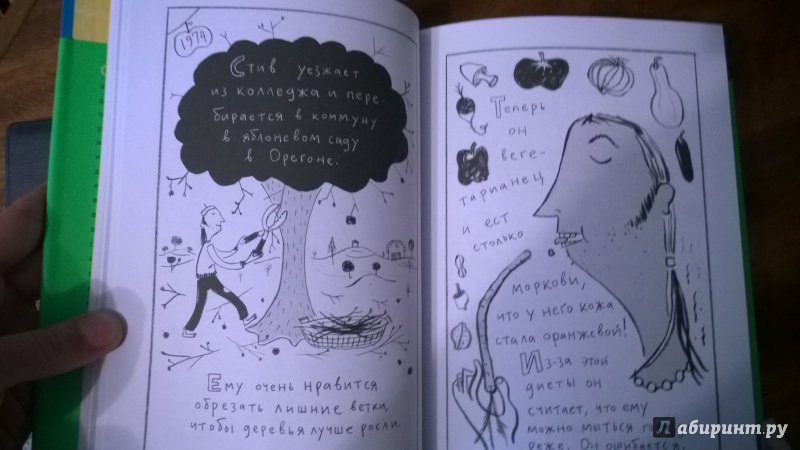 1974
Стив уезжает
из колледжа и пере-
бирается в коммуну
в яблоневом саду
в Орегоне.
Ему очень нравится
обрезать лишние ветки,
чтобы деревья лучше росли.
Теперь
он
веге-
тарианец
и ест
столько
моркови,
что у него кожа
стала оранжевой!
Из-за этой
диеты он
считает, что ему
можно мыться
реже. Он ошибается.
Лабиринт.ру